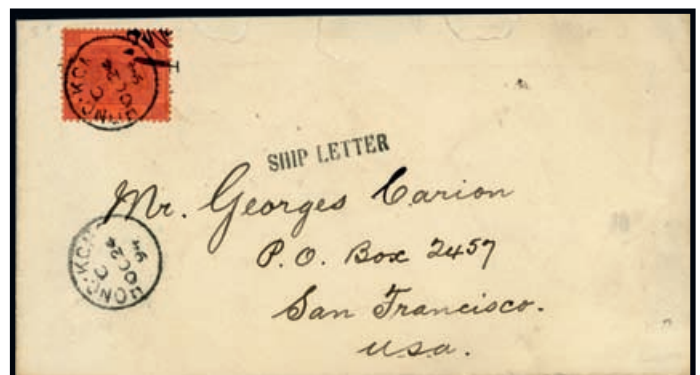 HONG-KONG
C
OC 24
94
SHIP LETTER
Mr. Georges Carion
P.O. Box 2457
San Francisco.
usa.
HONG-KONG
C
OC 24
94